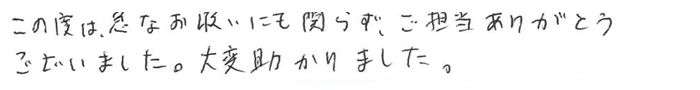 この度は、急なお願いにも関らず、ご担当ありがとう
ございました。大変助かりました。